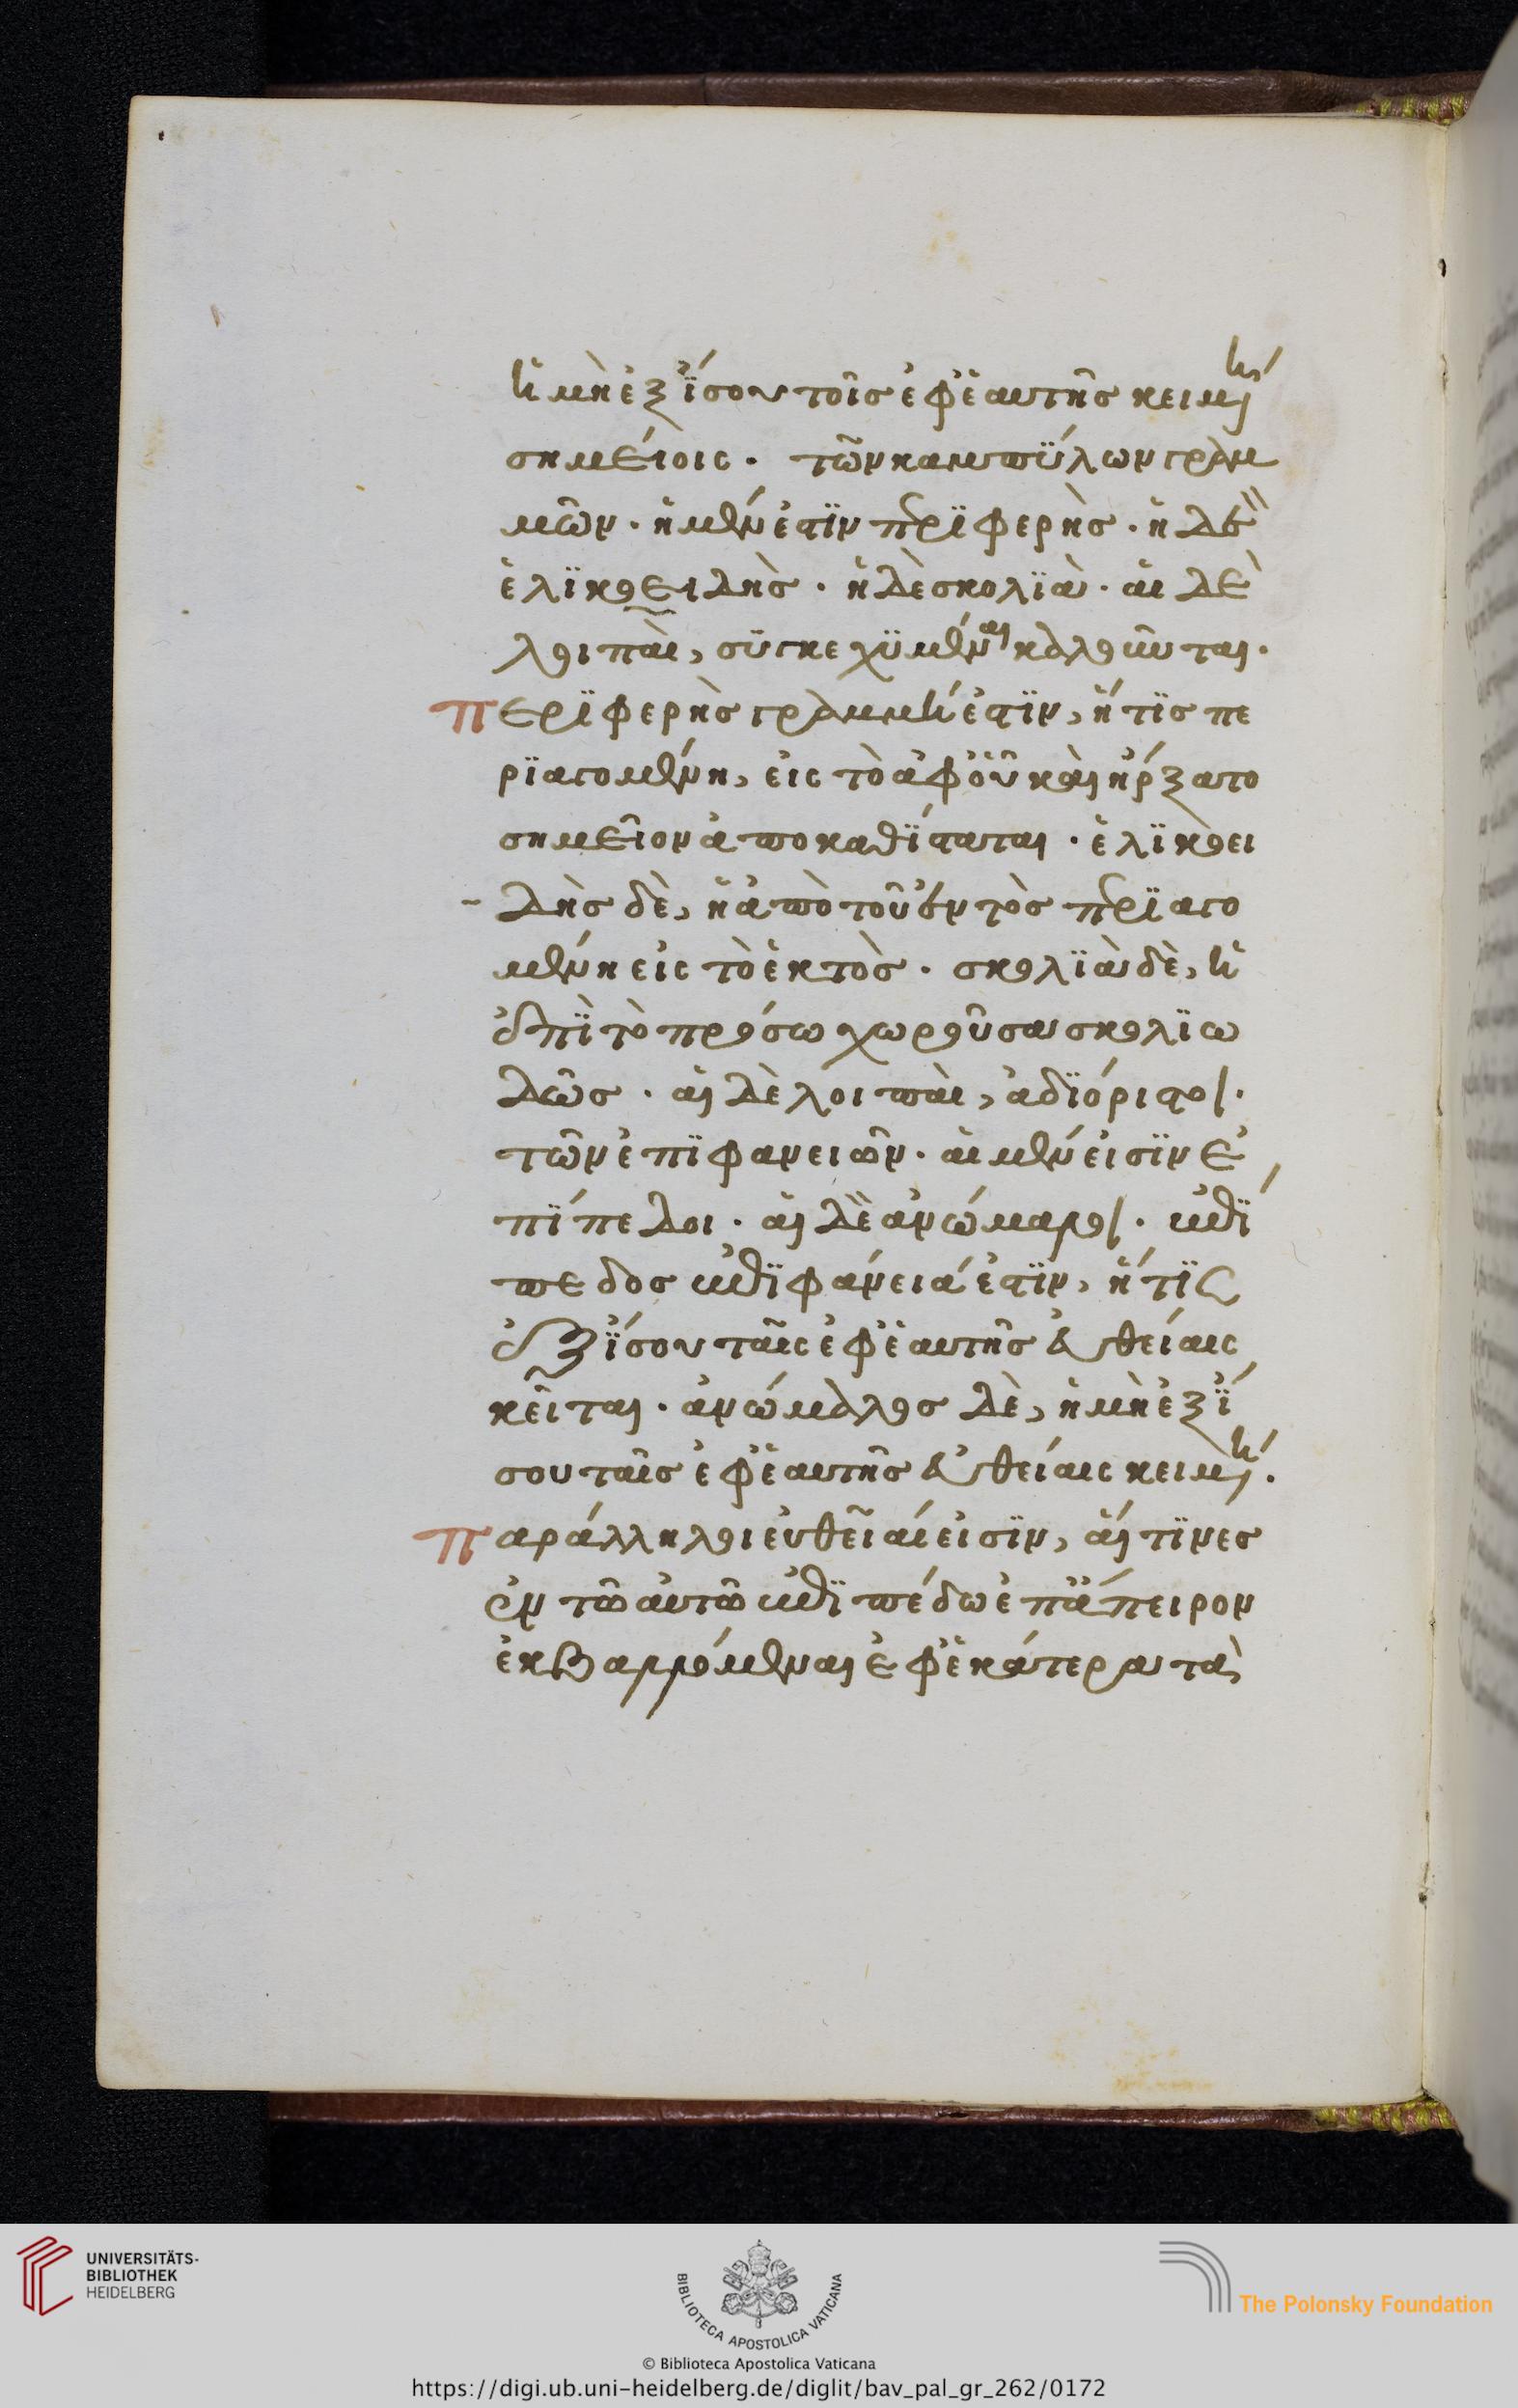 ἡ μὴ ἐξ ἴσου τοῖς ἐφ' ἑαυτῆς κειμένη
σημείοις · τῶν καμπύλων γραμ
μῶν · ἡ μέν ἐστιν περιφερὴς · ἡ δὲ
ἑλικοειδὴς · ἡ δὲ σκολιὰ · αἱ δὲ
λοιπαὶ, συγκεχυμέναι καλοῦνται ·
περιφερὴς γραμμή ἐστιν, ἥτις πε
ριαγομένη, εἰς τὸ ἀφ' οὗ καὶ ἤρξατο
σημεῖον ἀποκαθίσταται · ἑλικοει
δὴς δὲ, ἡ ἀπὸ τοῦ ἐντὸς περιαγο
μένη εἰς τὸ ἐκτὸς · σκολιὰ δὲ, ἡ
ἐπὶ τὸ πρόσω χωροῦσα σκολιω
δῶς · αἱ δὲ λοιπαὶ, ἀδιόριστοι ·
τῶν ἐπιφανειῶν · αἱ μέν εἰσιν ἐ
πίπεδοι · αἱ δὲ ἀνώμαλοι · ἐπί
πεδος ἐπιφάνειά ἐστιν, ἥτις
ἐξ ἴσου ταῖς ἐφ' ἑαυτῆς εὐθείαις
κεῖται · ἀνώμαλος δὲ, ἡ μὴ ἐξ ἴ
σου ταῖς ἐφ' ἑαυτῆς εὐθείαις κειμένη ·
παράλληλοι εὐθεῖαί εἰσιν, αἵτινες
ἐν τῶ αὐτῶ ἐπιπέδω ἐπ' ἄπειρον
ἐκβαλλόμεναι ἐφ' ἑκάτερα τὰ
UNIVERSITÄTS-
BIBLIOTHEK
HEIDELBERG
BIBLIOTECA APOSTOLICA VATICANA
The Polonsky Foundation
© Biblioteca Apostolica Vaticana
https://digi.ub.uni-heidelberg.de/diglit/bav_pal_gr_262/0172